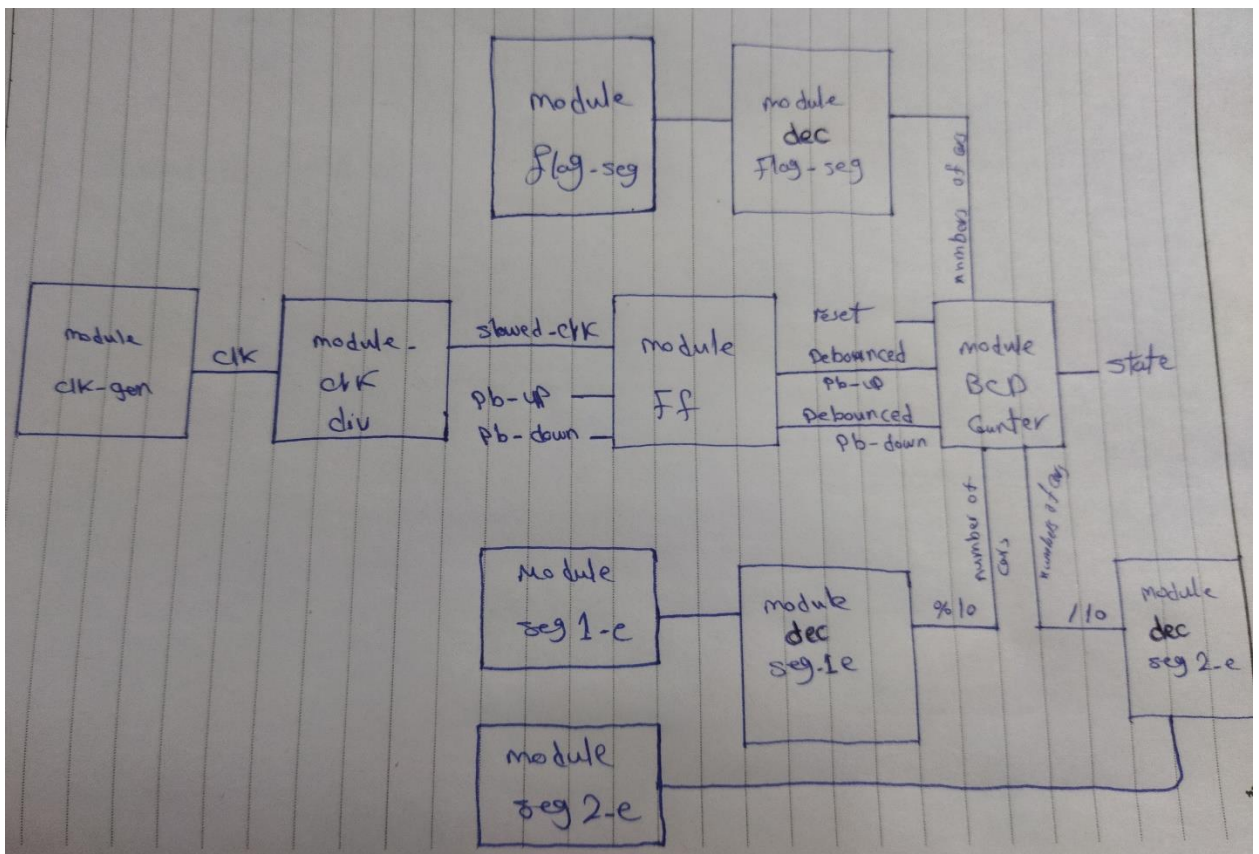 module
flag-seg
module
dec
flag-seg
numbers of cars
module
clk-gen
clk
module-
clk
div
slowed-clk
Pb-up
Pb-down
module
FF
reset
Debounced
Pb-up
Debounced
Pb-down
module
BCD
Counter
state
number of
cars
numbers of cars
Module
seg 1-e
module
dec
seg-1e
%10
/10
module
dec
seg 2-e
module
seg 2-e